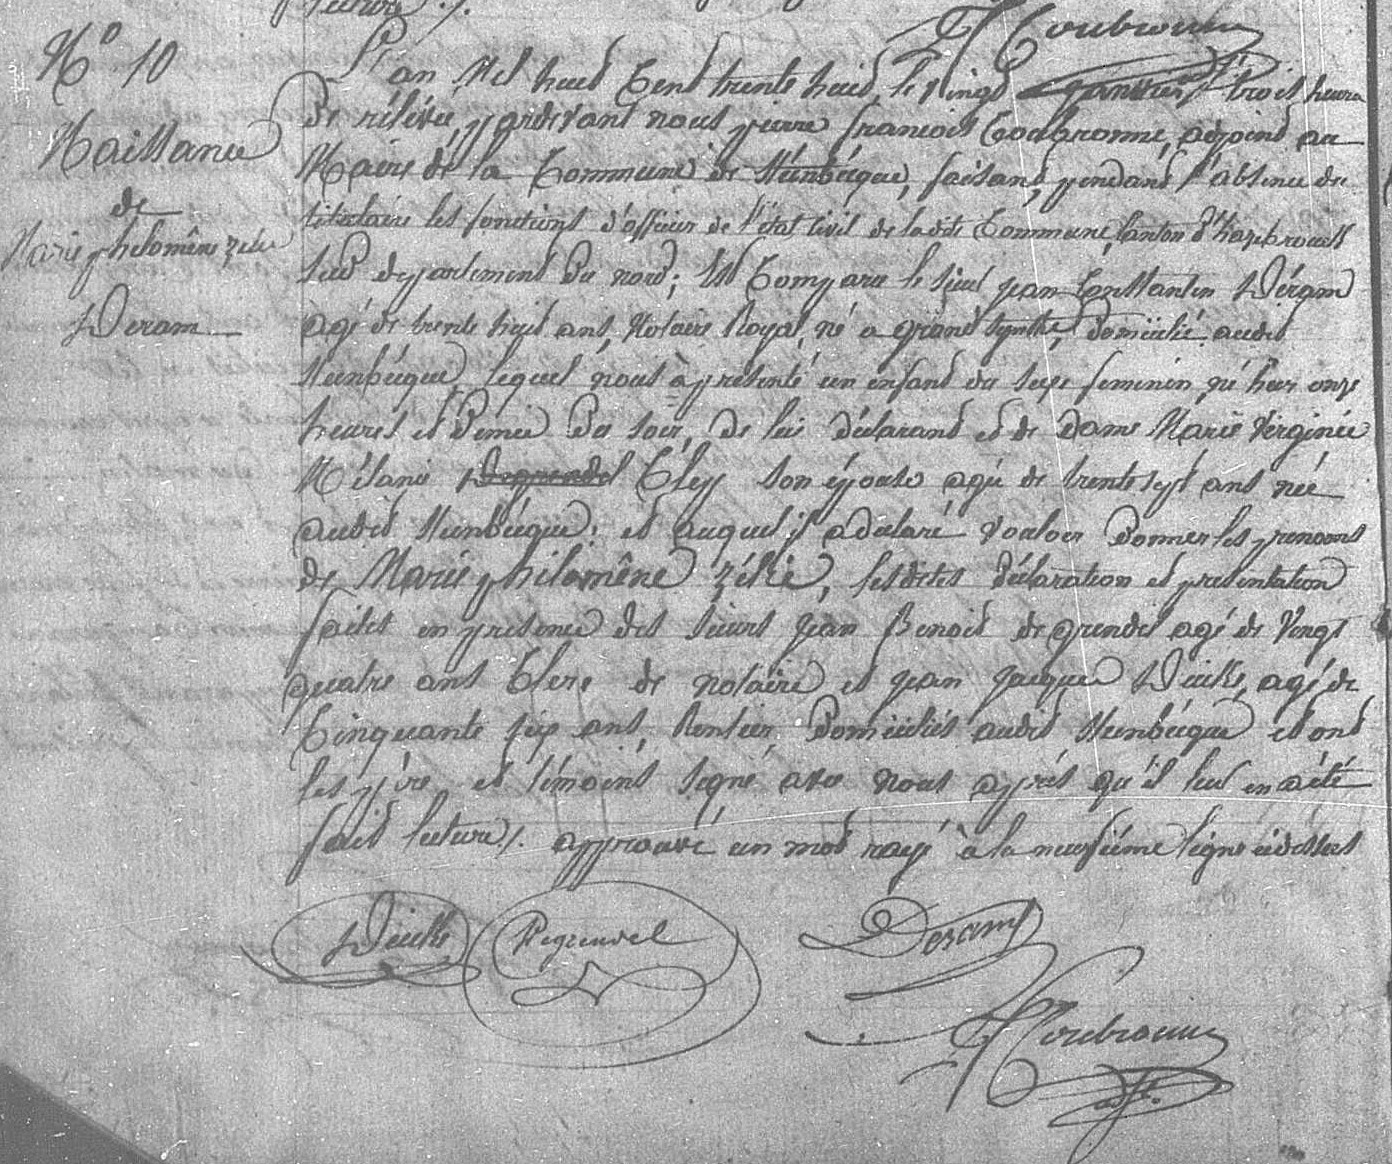 lecture ./.
Coubronne
N° 10
Naissance
de
Marie philomène zélie
Deram
L'an Mil huit Cent trente huit, le Vingt janvier trois heures
De rélévée, pardevant nous pierre francois Coubronne, adjoint au
Maire de la Commune de Steenbécque, faisant, pendant l'absence du
titulaire les fonctions d'officier de l'état Civil de ladite Commune, Canton d'hazebrouck
Sud departement Du nord; Est Comparu le sieur jean Constantin Déram
agé de trente huit ans, Notaire Royal, né a grande Synthe, Domicilié audit
Steenbécque, lequel nous à présenté un enfant du sexe feminin, né hier onze
heures et Demie Du soir, de lui déclarant et de dame Marie Virginie
Mélanie Degrendel Cley son épouse agée de trente sept ans née
audit Steenbécque; et auquel il a déclaré vouloir Donner les prenoms
de Marie philomène zélie, lesdites déclaration et presentation
faites en presence des sieurs jean Benoit degrendel agé de Vingt
quatre ans Clerc de notaire et jean jacques Deicke, agé de
Cinquante six ans, Rentier, Domiciliés audit Steenbécque et ont
les père et témoins signé avec nous après qu'il leur en a été
fait lecture ./. approuvé un mot rayé à la neuvième ligne cidessus
Deicke Degrendel Deram
Coubronne
adjt.